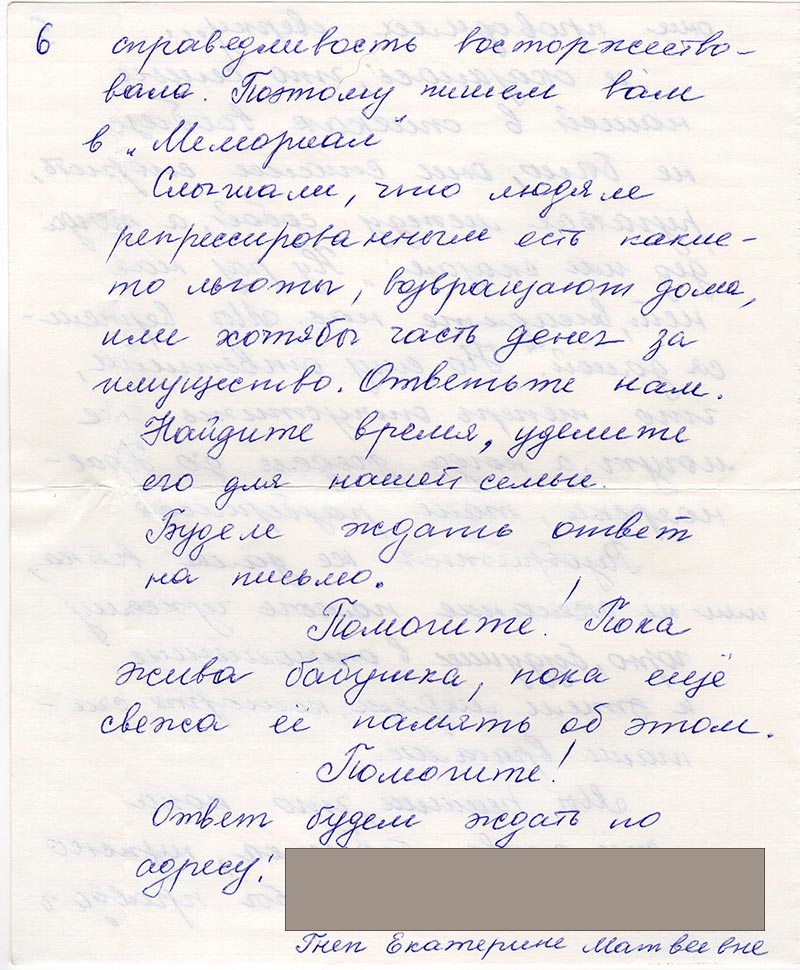 6 справедливость восторжество-
вала. Поэтому пишем вам
в „Мемориал"
Слышали, что людям
репрессированным есть какие-
то льготы, возвращают дома,
или хотябы часть денег за
имущество. Ответьте нам.
Найдите время, уделите
его для нашей семьи.
Будем ждать ответ
на письмо.
Помогите! Пока
жива бабушка, пока ещё
свежа её память об этом.
Помогите!
Ответ будем ждать по
адресу:
Гнеп Екатерине Матвеевне